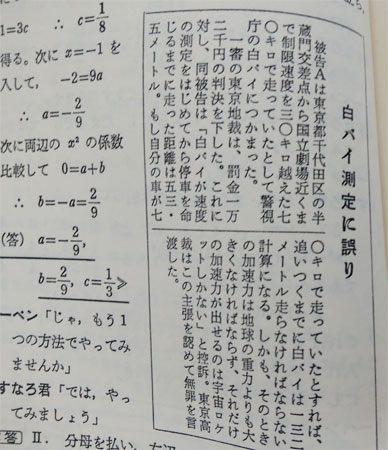 1=3c ∴ c=1/8
得る。次に x=−1を
入して, −2=9a
∴ a=−2/9
次に両辺の x² の係数
比較して 0=a+b
∴ b=−a=2/9
(答) a=−2/9,
b=2/9, c=1/3
ーベン「じゃ,もう1
つの方法でやってみ
ませんか」
すなろ君「では,やっ
てみましょう」
答 Ⅱ. 分母を払い,
白バイ測定に誤り
被告Aは東京都千代田区の半
蔵門交差点から国立劇場近くま
で制限速度を三〇キロ越えた七
〇キロで走っていたとして警視
庁の白バイにつかまった。
一審の東京地裁は、罰金一万
二千円の判決を下した。これに
対し、同被告は「白バイが速度
の測定をはじめてから停車を命
じるまでに走った距離は五三・
五メートル。もし自分の車が七
〇キロで走っていたとすれば、
追いつくまでに白バイは一三二
メートル走らなければならない
計算になる。しかも、そのとき
の加速力は地球の重力よりも大
きくなければならず、それだけ
の加速力が出せるのは宇宙ロケ
ットしかない」と控訴。東京高
裁はこの主張を認めて無罪を言
渡した。